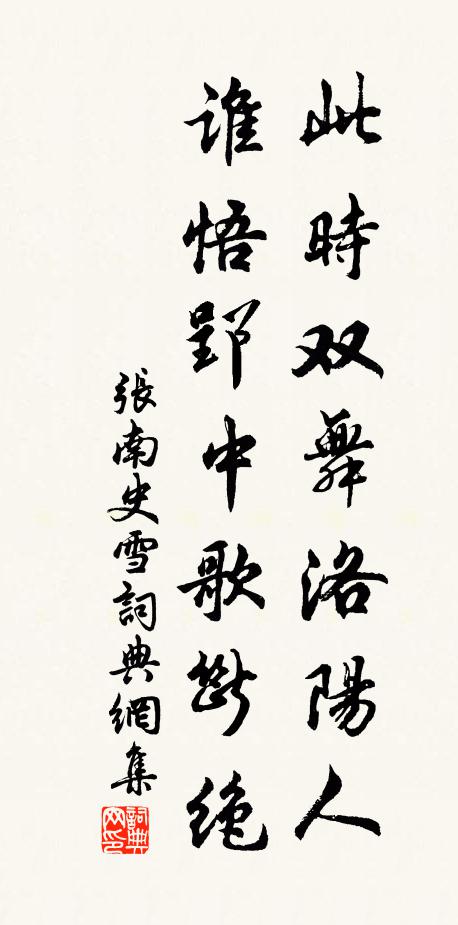 此時双舞洛陽人
誰悟郢中歌斷絶
張南史雪詞典網集
詞典网印